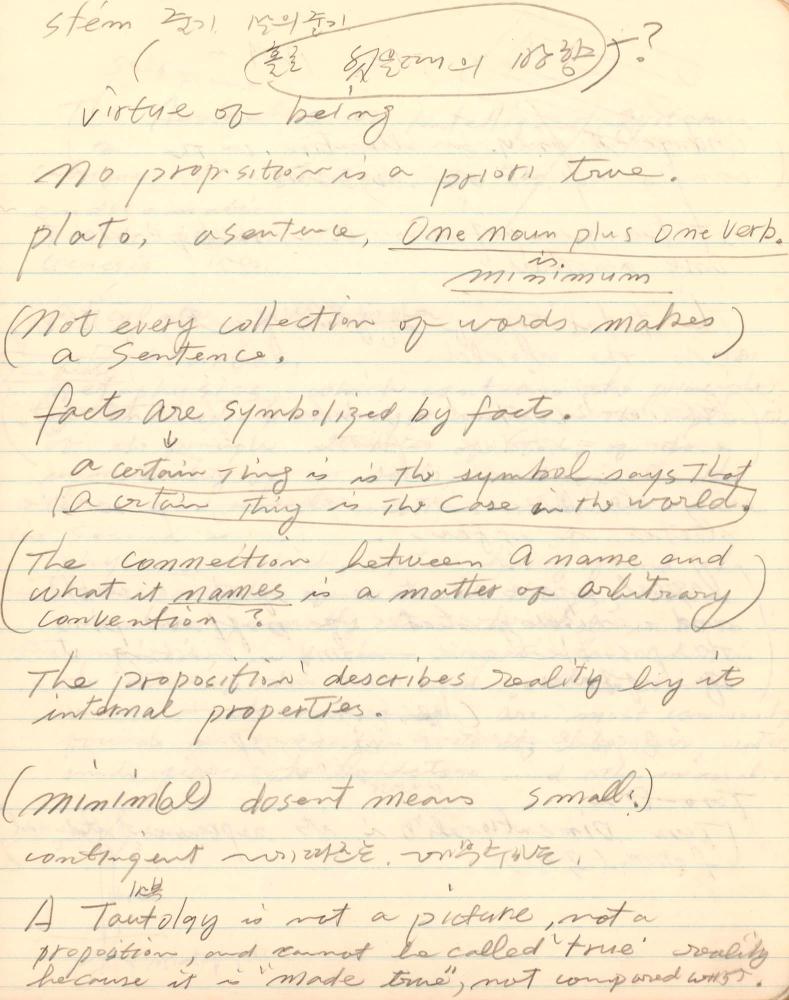 stem 줄기 말의 줄기
( 홀로 했을때의 방향 ) ?
virtue of being
No propositionis a priori true.
plato, asentence, One noun plus One Verb.
is.
minimum
(Not every collection of words makes)
a Sentence.
facts are symbolized by facts.
↓
a certain Thing is is The symbol says That
a crtain Thing is The Case in the world.
(The connection between a name and
what it names is a matter of arbitrary)
convention ?
The proposition describes reality by its
internal properties.
(minim(al) dosent means small.)
contingent
A Tautolgy is not a picture, not a
proposition, and cannot be called 'true' reality
because it is "made true", not compared with.